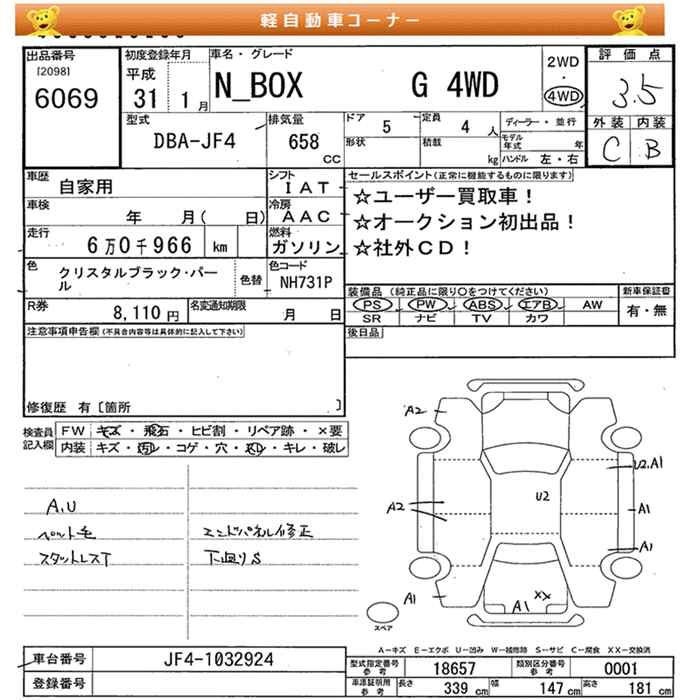 軽自動車コーナー
出品番号
[2098]
6069
初度登録年月
平成
31 1月
車名・グレード
N_BOX G 4WD
2WD
・
4WD
評価点
3.5
外装 内装
C B
型式
DBA-JF4
排気量
658
CC
ドア
5
形状
定員
4 人
積載
kg
ディーラー・並行
モデル年式 年
ハンドル 左・右
車歴
自家用
シフト
IAT
車検
年 月( 日)
冷房
AAC
走行
6万0千966 km
燃料
ガソリン
色
クリスタルブラック・パール
色替
色コード
NH731P
R券
8,110 円
名変通知期限
月 日
セールスポイント(正常に機能するものに限ります)
☆ユーザー買取車!
☆オークション初出品!
☆社外CD!
装備品 (純正品に限り○をつけてください)
PS PW ABS エアB AW
SR ナビ TV カワ
新車保証書
有・無
後日品
注意事項申告欄(不具合内容等は具体的に記入して下さい)
修復歴 有〔箇所 〕
検査員記入欄
FW キズ・飛石・ヒビ割・リペア跡・×要
内装 キズ・汚レ・コゲ・穴・スレ・キレ・破レ
A,U
ペット毛
スタットレスT
エンドパネル修正
下廻りS
A2
U2.A1
A2
U2
A1
A1
A1
A1
XX
スペア
A―キズ E―エクボ U―凹み W―補修跡 S―サビ C―腐食 XX―交換済
車台番号
JF4-1032924
登録番号
型式指定番号 参考
18657
類別区分番号 参考
0001
車庫証明用 参考
長さ 339 cm 幅 147 cm 高さ 181 cm